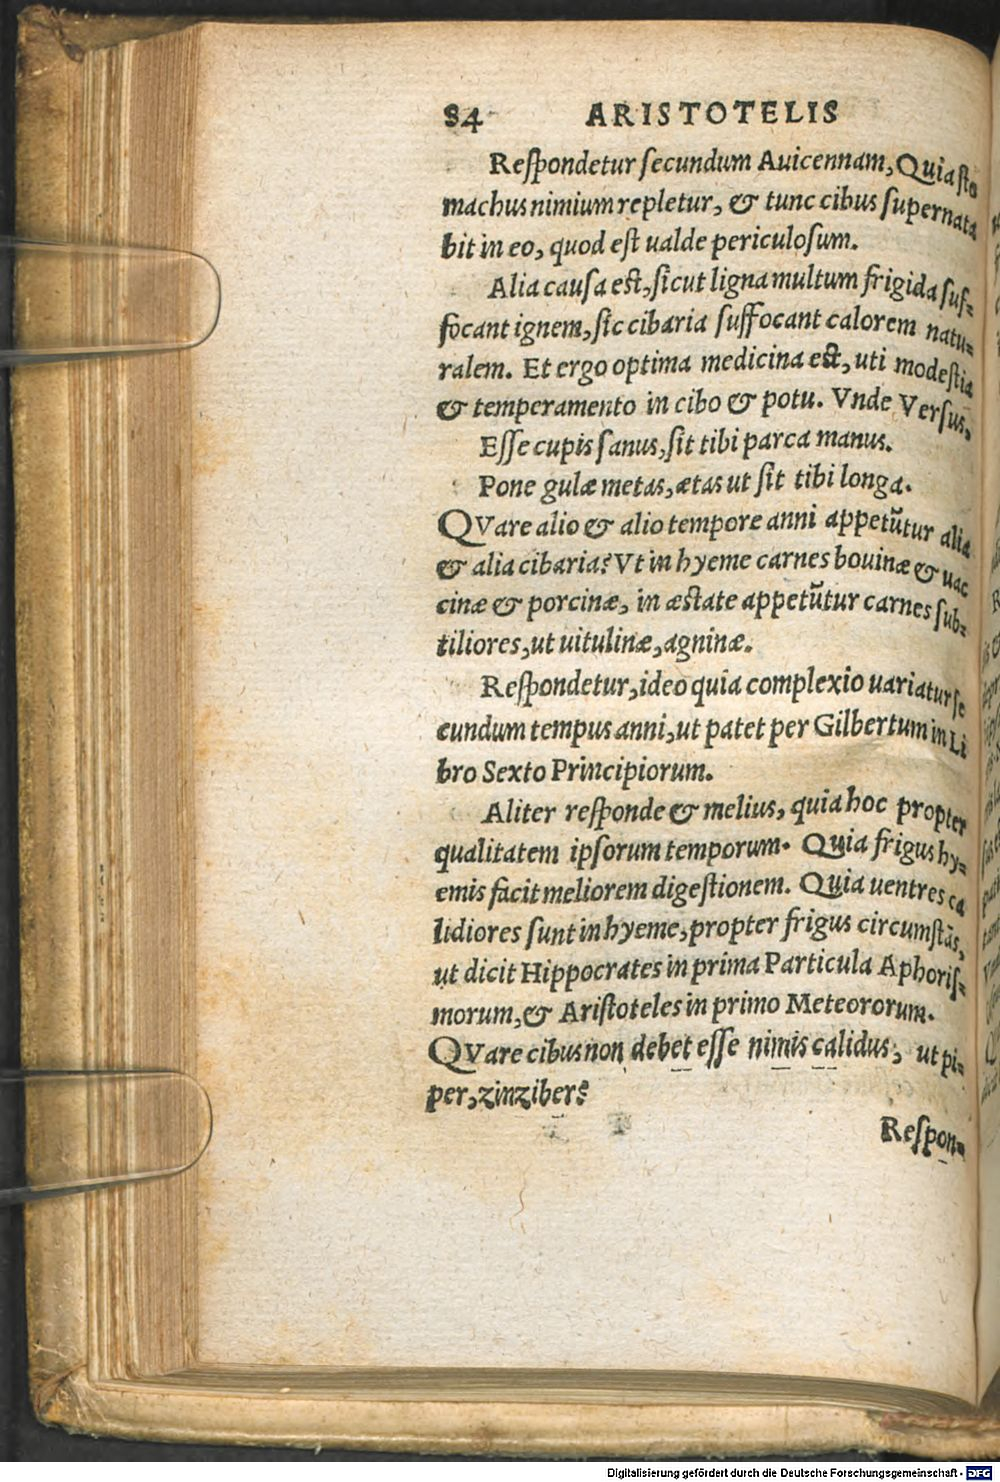 84 ARISTOTELIS
Reſpondetur ſecundum Auicennam, Quia ſto
machus nimium repletur, & tunc cibus ſupernata
bit in eo, quod eſt ualde periculoſum.
Alia cauſa eſt, ſicut ligna multum frigida ſuf-
focant ignem, ſic cibaria ſuffocant calorem natu-
ralem. Et ergo optima medicina eſt, uti modeſtia
& temperamento in cibo & potu. Vnde Verſus,
Eſſe cupis ſanus, ſit tibi parca manus.
Pone gulæ metas, ætas ut ſit tibi longa.
QVare alio & alio tempore anni appetũtur alia
& alia cibaria? Vt in hyeme carnes bouinæ & uac
cinæ & porcinæ, in æſtate appetũtur carnes ſub-
tiliores, ut uitulinæ, agninæ.
Reſpondetur, ideo quia complexio uariatur ſe
cundum tempus anni, ut patet per Gilbertum in Li
bro Sexto Principiorum.
Aliter reſponde & melius, quia hoc propter
qualitatem ipſorum temporum. Quia frigus hy-
emis facit meliorem digeſtionem. Quia uentres ca
lidiores ſunt in hyeme, propter frigus circumſtãs,
ut dicit Hippocrates in prima Particula Aphoriſ-
morum, & Ariſtoteles in primo Meteororum.
QVare cibus non debet eſſe nimis calidus, ut pi-
per, zinziber?
Reſpon-
Digitalisierung gefördert durch die Deutsche Forschungsgemeinschaft - DFG